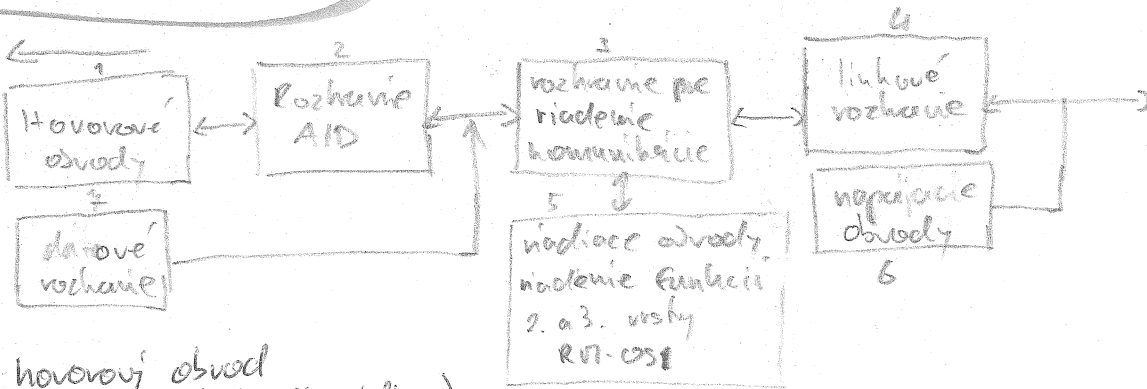 1
Hovorové
obvody
2
Rozhranie
A/D
3
rozhranie pre
riadenie
komunikácie
4
linkové
rozhranie
7
dátové
rozhranie
5
riadiace obvody
riadenie funkcií
2. a 3. vrstvy
RM-OSI
napájacie
obvody
6
hovorový obvod